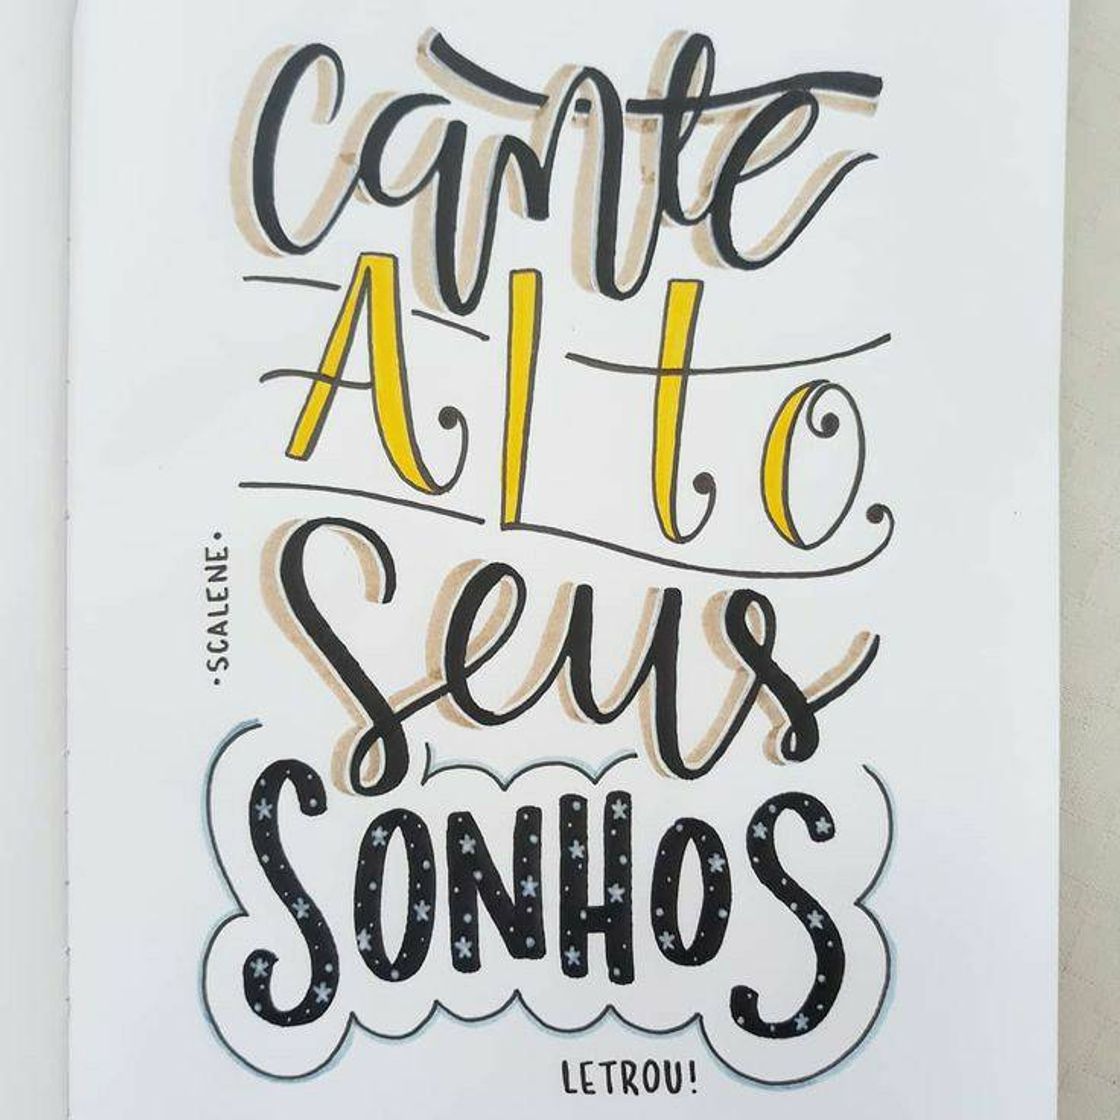 Cante
ALto
Seus
SONHOS
•SCALENE•
LETROU!